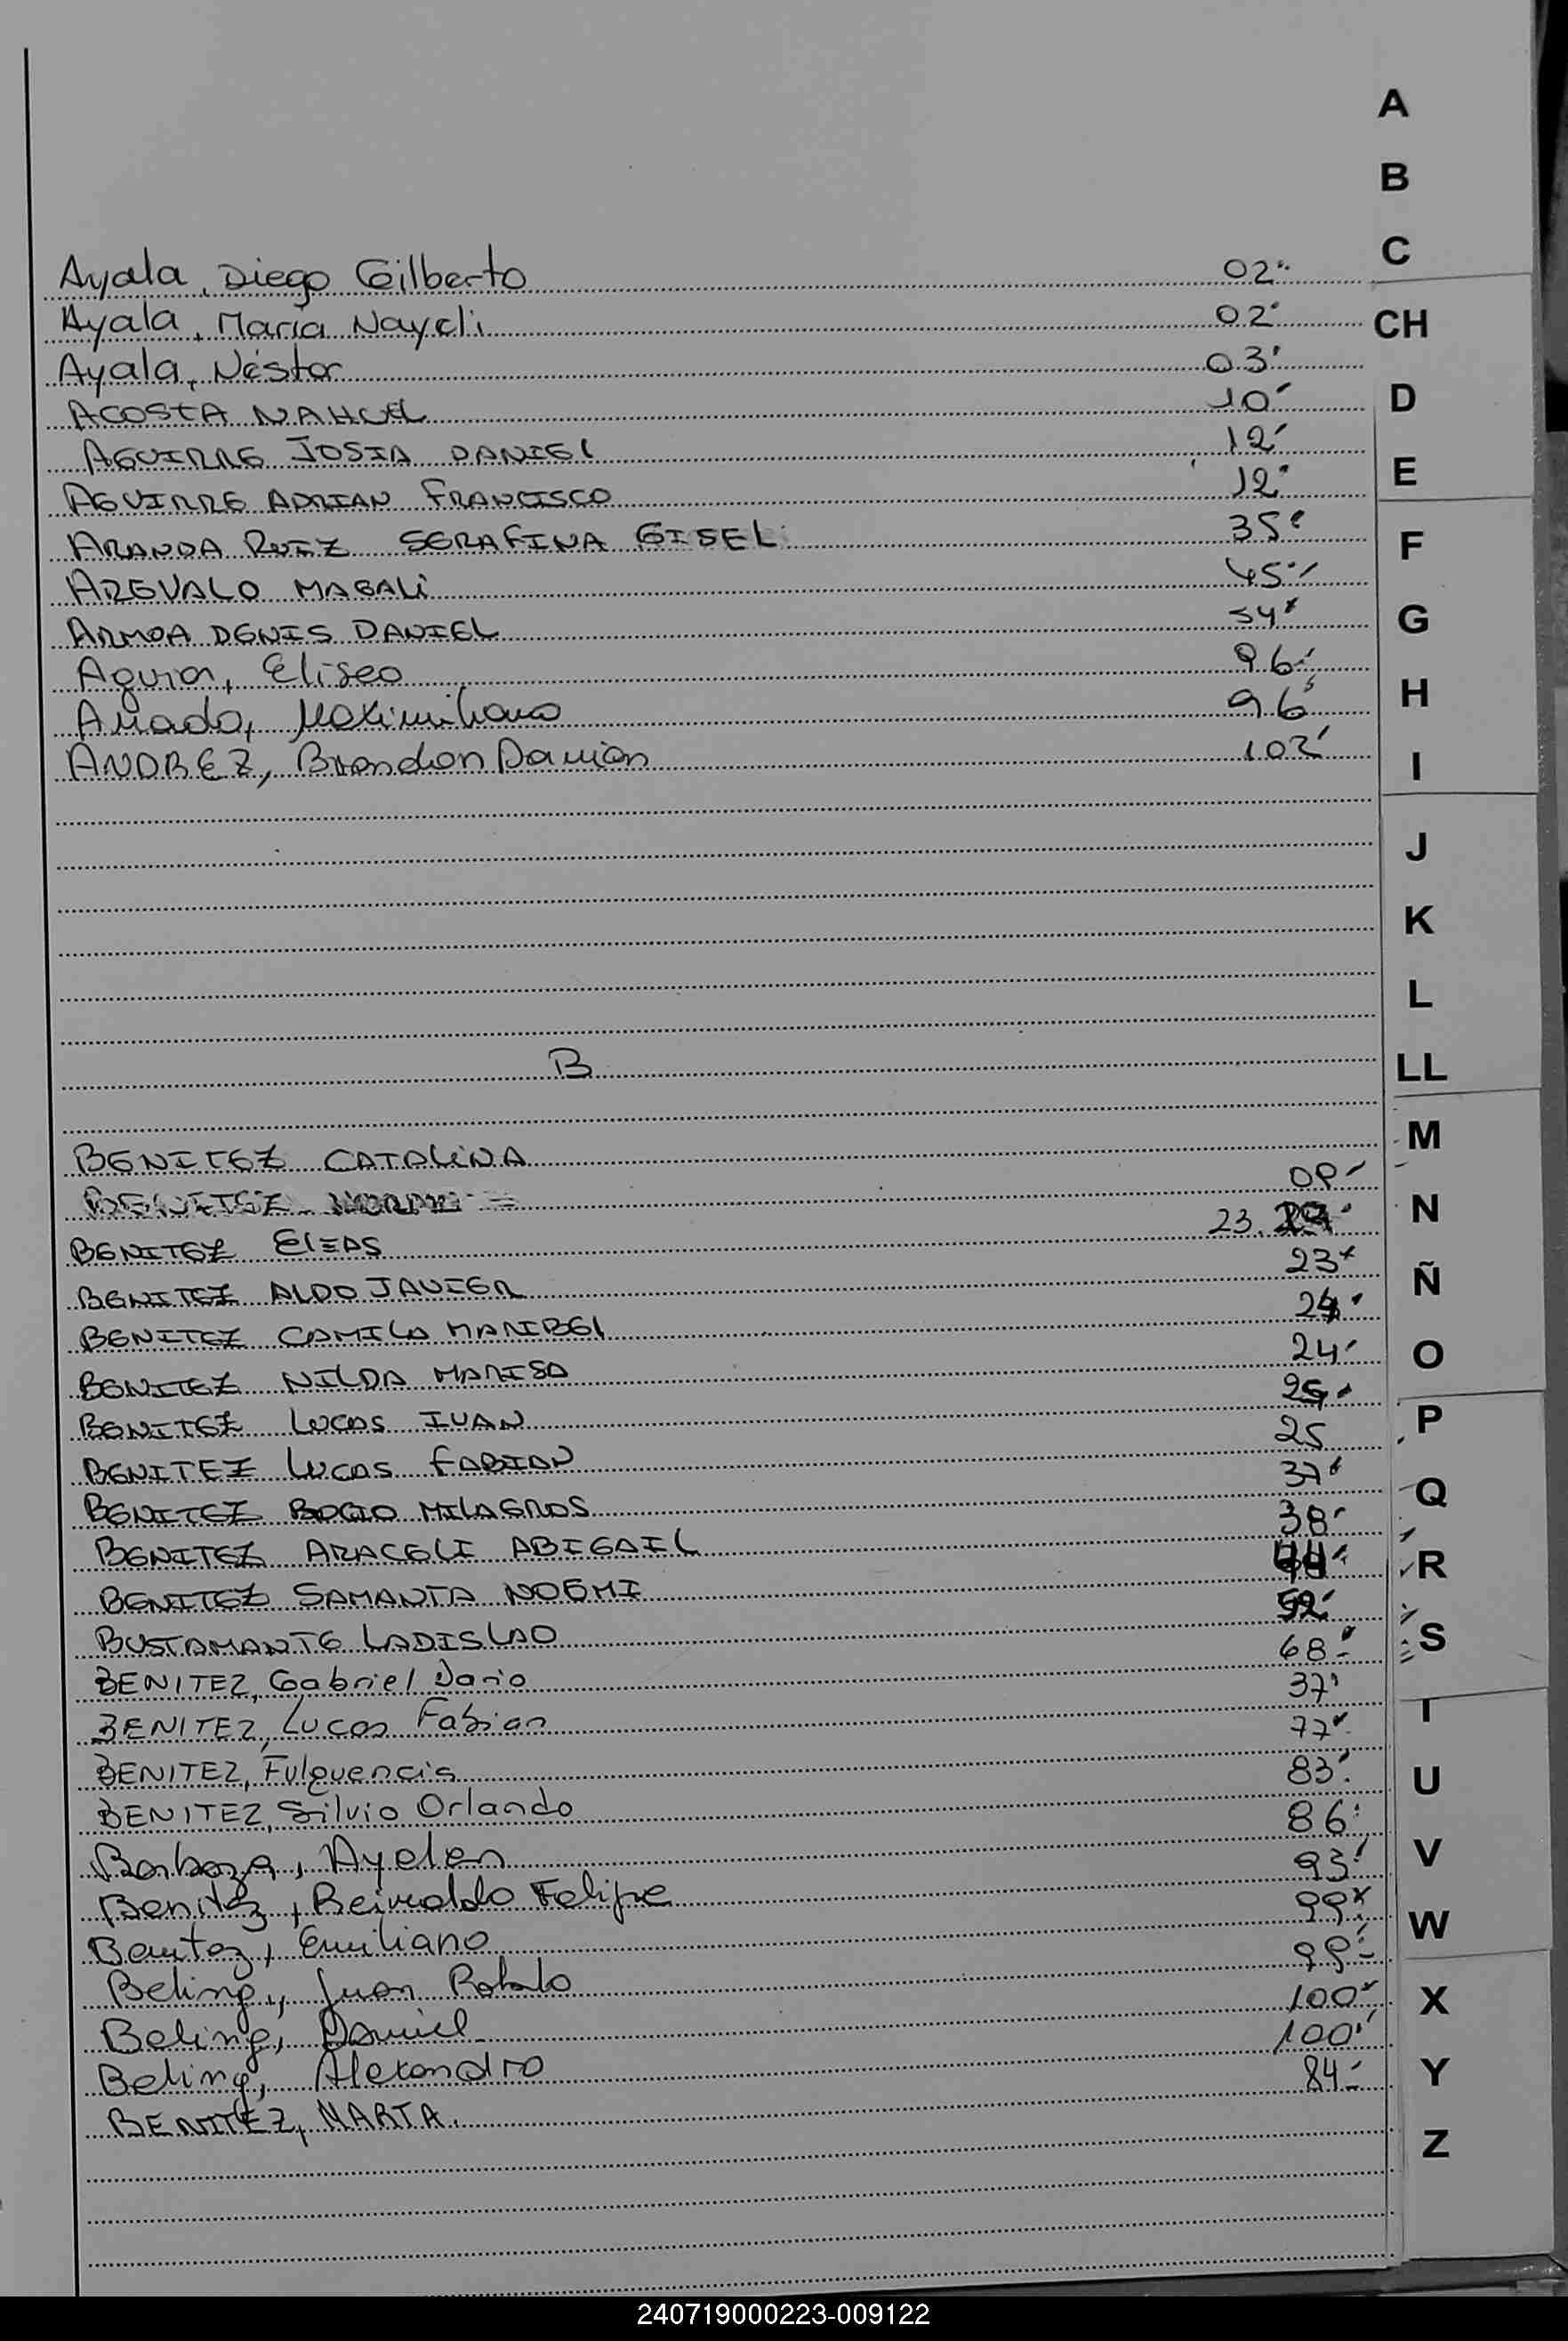 Ayala, Diego Gilberto 02
Ayala, María Nayeli 02
Ayala, Néstor 03
ACOSTA NAHUEL 10
AGUIRRE JOSIA DANIEL 12
AGUIRRE ADRIAN FRANCISCO 12
ARANDA RUIZ SERAFINA GISEL 35
AREVALO MAGALI 45
ARMOA DENIS DANIEL 54
Aguiar, Eliseo 96
Amado, Maximiliano 96
ANDREZ, Brandon Damián 102
B
BENITEZ CATALINA 09
BENITEZ
BENITEZ ELIAS 23
BENITEZ ALDO JAVIER 23
BENITEZ CAMILA MARIBEL 24
BENITEZ NILDA MARISA 24
BENITEZ LUCAS IVAN 25
BENITEZ LUCAS FABIAN 25
BENITEZ ROCIO MILAGROS 37
BENITEZ ARACELI ABIGAIL 38
BENITEZ SAMANTA NOEMI 44
BUSTAMANTE LADISLAO 52
BENITEZ, Gabriel Dario 68
BENITEZ, Lucas Fabian 37
BENITEZ, Fulguencis 77
BENITEZ, Silvio Orlando 83
Barboza, Ayelen 86
Benitez, Reinaldo Felipe 93
Benitez, Emiliano 99
Beling, Juan 99
Beling, Daniel 100
Beling, Alexandro 100
BENITEZ, MARTA. 84
A
B
C
CH
D
E
F
G
H
I
J
K
L
LL
M
N
Ñ
O
P
Q
R
S
T
U
V
W
X
Y
Z
240719000223-009122